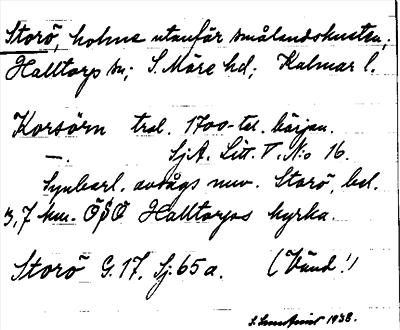 Storö, holme utanför smålandskusten,
Halltorps sn; S. Möre hd; Kalmar l.
Korsörn trol. 1700-tal. början.
—. SjA. Litt. V. N:o 16.
Synbarl. avsågs nuv. Storö, bel.
3,7 km. ÖSÖ Halltorps kyrka.
Storö G. 17. Sj. 65 a. (Vänd!)
1938.